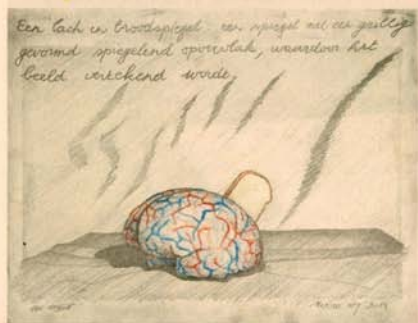 Een lach en broodspiegel: een spiegel met een grillig
gevormd spiegelend oppervlak, waardoor het
beeld vertekend wordt.